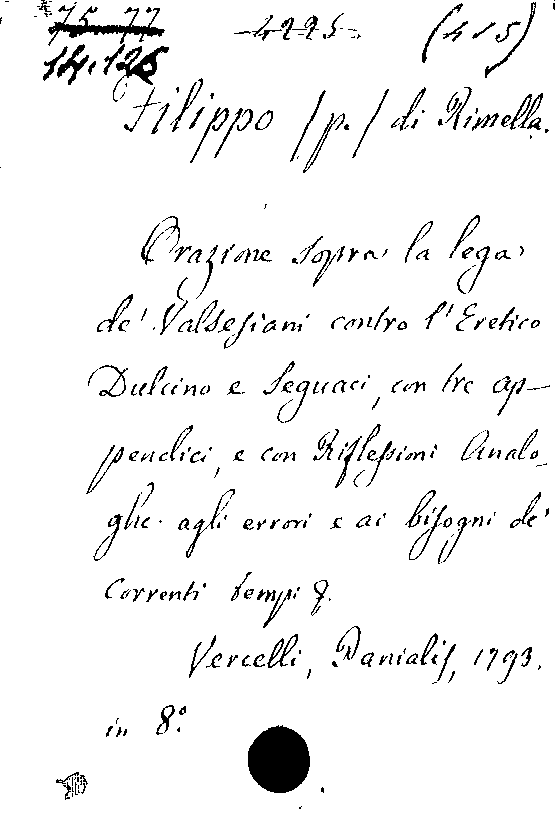 75. 77 4225. (415)
14.126
Filippo /p./ di Rimella.
Orazione sopra la lega
de' Valsesiani contro l'Eretico
Dulcino e Seguaci, con tre ap-
pendici, e con Riflessioni Analo-
ghe agli errori e ai bisogni de'
correnti tempi &.
Vercelli, Panialis, 1793.
in 8°.